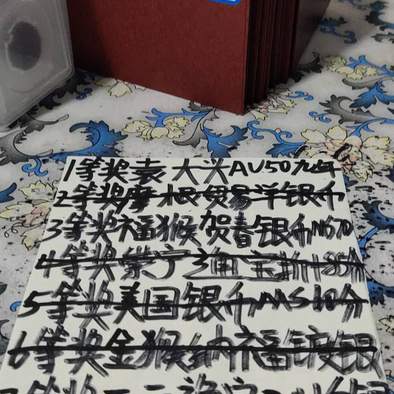 1等奖袁大头AU50九年
2等奖摩根贸易洋银币
3等奖福猴贺春银币MS70
4等奖崇宁通宝 85分
5等奖美国银币MS 分
6等奖金猴纳福镀银
等奖